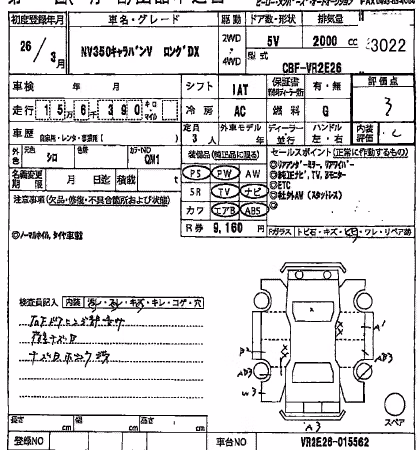 初度登録年月 車名・グレード 駆動 ドア数・形状 排気量
26 / 3月 NV350キャラバンV ロングDX 2WD 4WD 5V 2000 cc 3022
型式 CBF-VR2E26
車検 年 月 シフト IAT 保証書 有・無 評価点
走行 15万6千390 キロ・マイル 冷房 AC 燃料 G 3
車歴 自家用・レンタ・事業用( ) 定員 3人 外車モデル 年 ディーラー 並行 ハンドル 左・右 内装評価 C
外色 元色 シロ 色替 カラーNO QM1 装備品(純正品に限る) セールスポイント(正常に作動するもの)
名義変更期限 月 日迄 積載 t PS PW AW
◎純正ナビ,TV,Bモニター
◎ETC
SR TV ナビ ◎社外AW(スタッドレス)
注意事項(欠品・修復・不具合箇所および状態) カワ エアB ABS ◎
R券 9,160 円
◎ノーマルホイル,タイヤ車載 Fガラス トビ石・キズ・ヒビ・ワレ・リペア跡
検査員記入 内装 汚レ・スレ・キズ・キレ・コゲ・穴
A1
B2
AB3 AB3
W3
A3 スペア
長さ cm 幅 cm 高さ cm
登録NO 車台NO VR2E26-015562